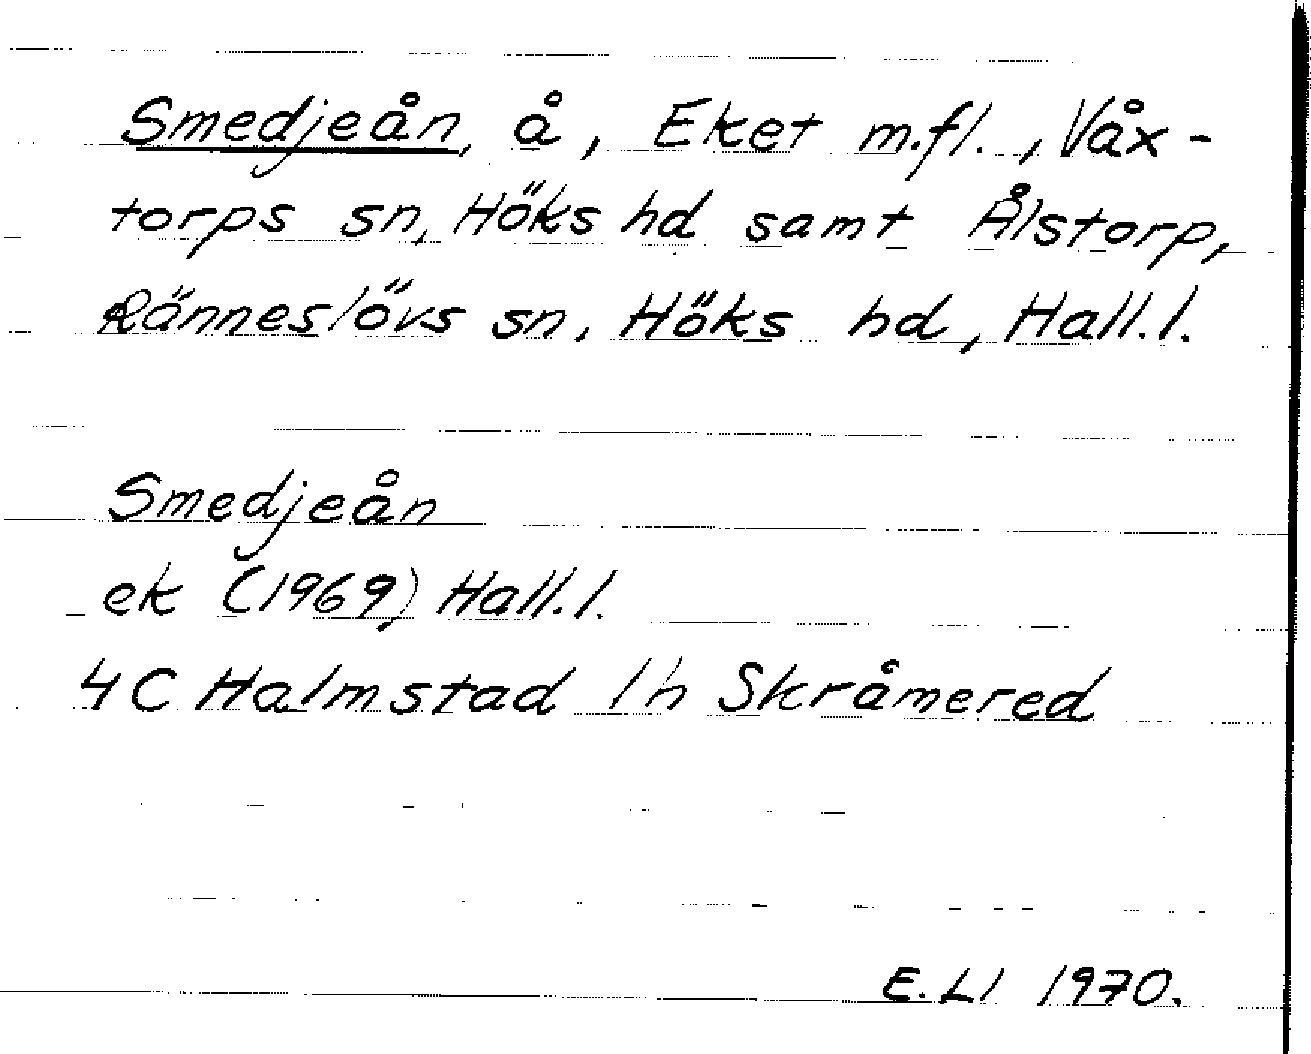 Smedjeån, å, Eket m.fl., Våx-
torps sn, Höks hd samt Ålstorp,
Ränneslövs sn, Höks hd, Hall.l.
Smedjeån
ek (1969) Hall.l.
4C Halmstad 1h Skråmered
E.Ll 1970.